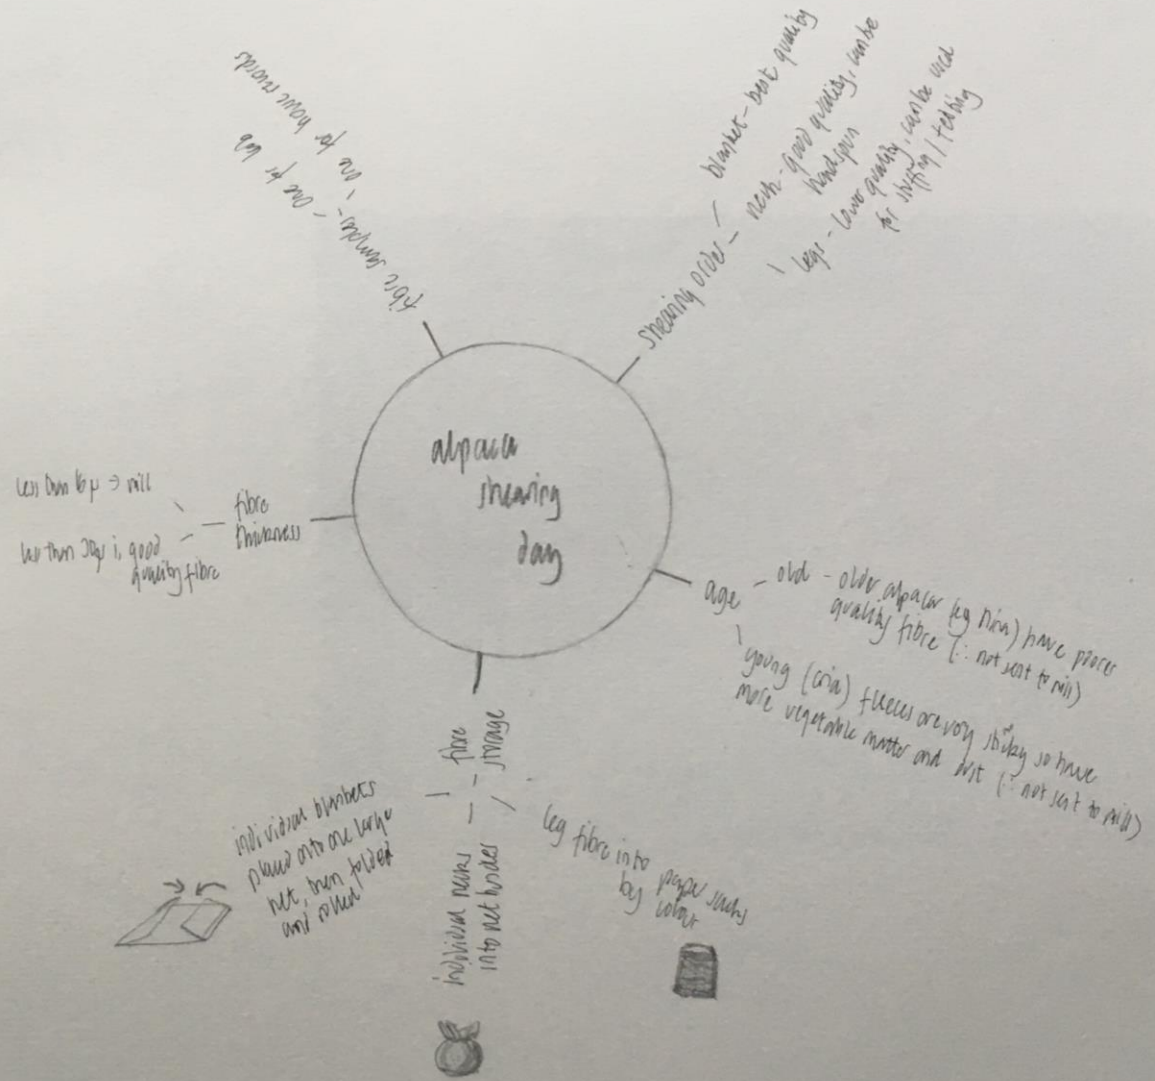 alpaca
shearing
day
shearing order
blanket - best quality
neck - good quality, can be
handspun
legs - lower quality, can be used
for stuffing / felting
age
old - older alpacas (eg Nina) have poorer
quality fibre (∴ not sent to mill)
young (cria) fleeces are very sticky so have
more vegetable matter and dust (∴ not sent to mill)
fibre
storage
leg fibre into paper sacks
by colour
individual necks
into net bundles
individual blankets
placed onto one large
net, then folded
and rolled
fibre
thickness
less than → mill
less than is good
quality fibre
fibre samples
one for lab
one for home records